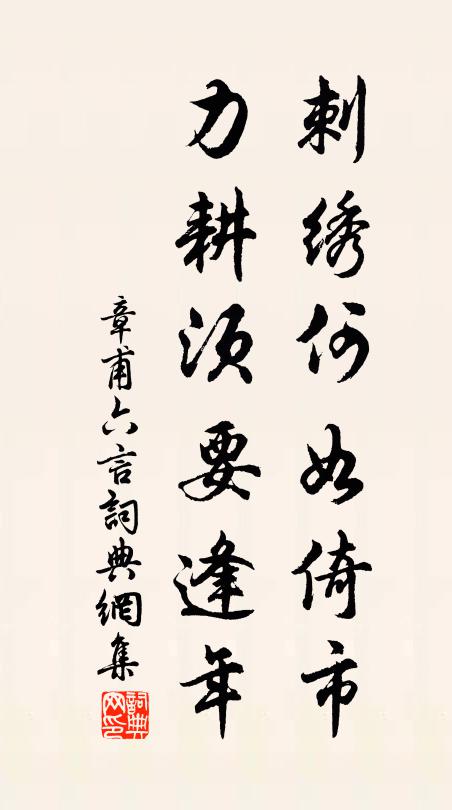 刺绣何如倚市
力耕须要逢年
章甫六言詞典網集
詞典网印